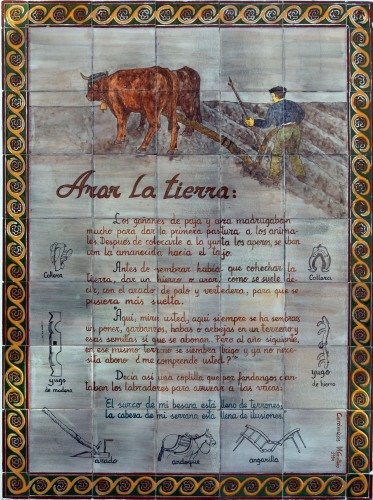 Arar La tierra:
Los gañanes de paja y era madrugaban
mucho para dar la primera pastura a los anima-
les. Después de colocarle a la yunta los aperos, se iban
con la amanecida hacia el tajo.
Antes de sembrar había que cohechar la
tierra, dar un hierro o arar, como se suele de-
cir, con el arado de palo y vertedera, para que se
pusiera más suelta.
"Aquí, mire usted, aquí siempre se ha sembrao,
un poner, garbanzos, habas o arbejas en un terreno y
esas semillas sí que se abonan. Pero al año siguiente,
en ese mismo terreno se siembra trigo y ya no nece-
sita abono ¿me comprende usted?"
Decía así una coplilla que por fandangos can-
taban los labradores para
a las
El surco de mi besana está lleno de terrones,
la cabeza de mi serrana está llena de ilusiones.
Collera
Collera
yugo
de madera
yugo
de hierro
arado
angarilla